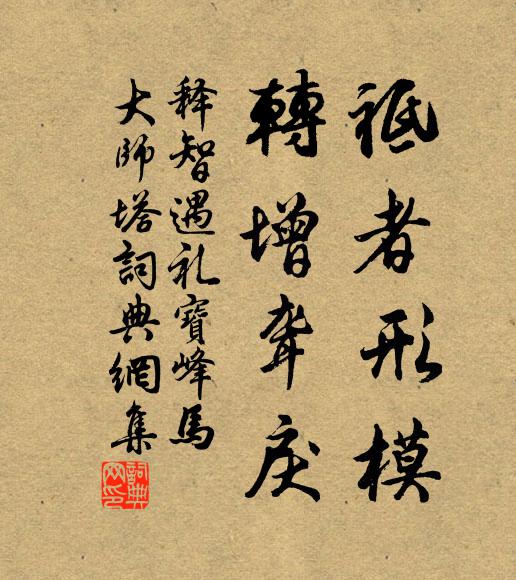 祗者形模
轉增戾
释智遇礼寶峰馬
大師塔詞典網集
詞典网印